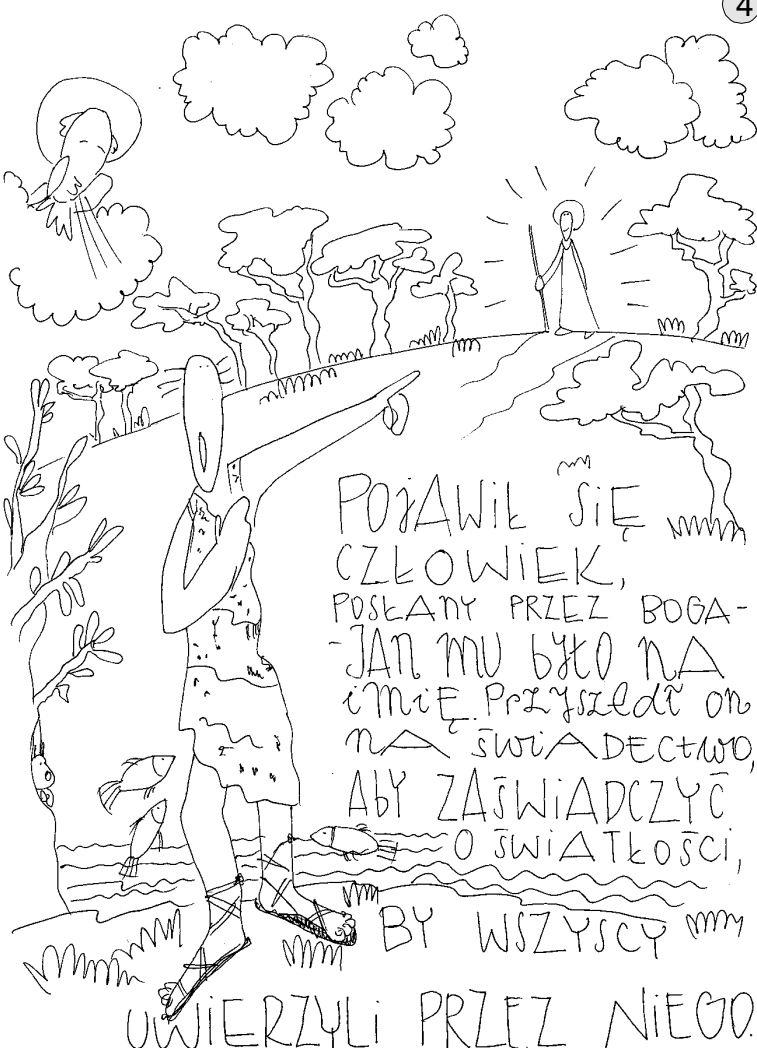 4
POJAWIŁ SIĘ
CZŁOWIEK,
POSŁANY PRZEZ BOGA-
-JAN MU BYŁO NA
IMIĘ. PRZYSZEDŁ ON
NA ŚWIADECTWO,
ABY ZAŚWIADCZYĆ
O ŚWIATŁOŚCI,
BY WSZYSCY
UWIERZYLI PRZEZ NIEGO.